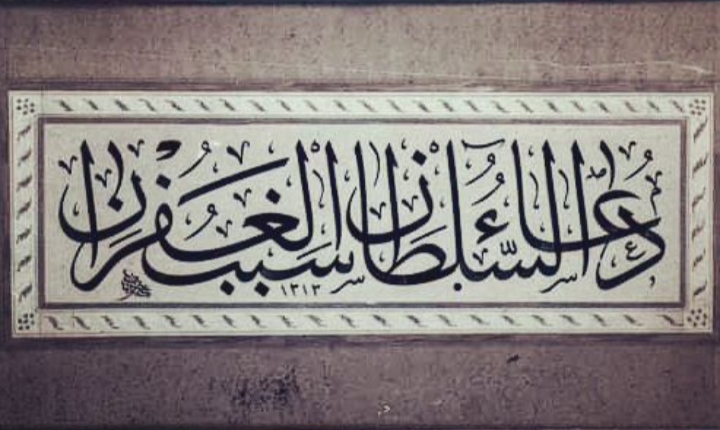 دُعَاءُ السُّلْطَانِ سَبَبُ الْغُفْرَانِ
١٣١٣